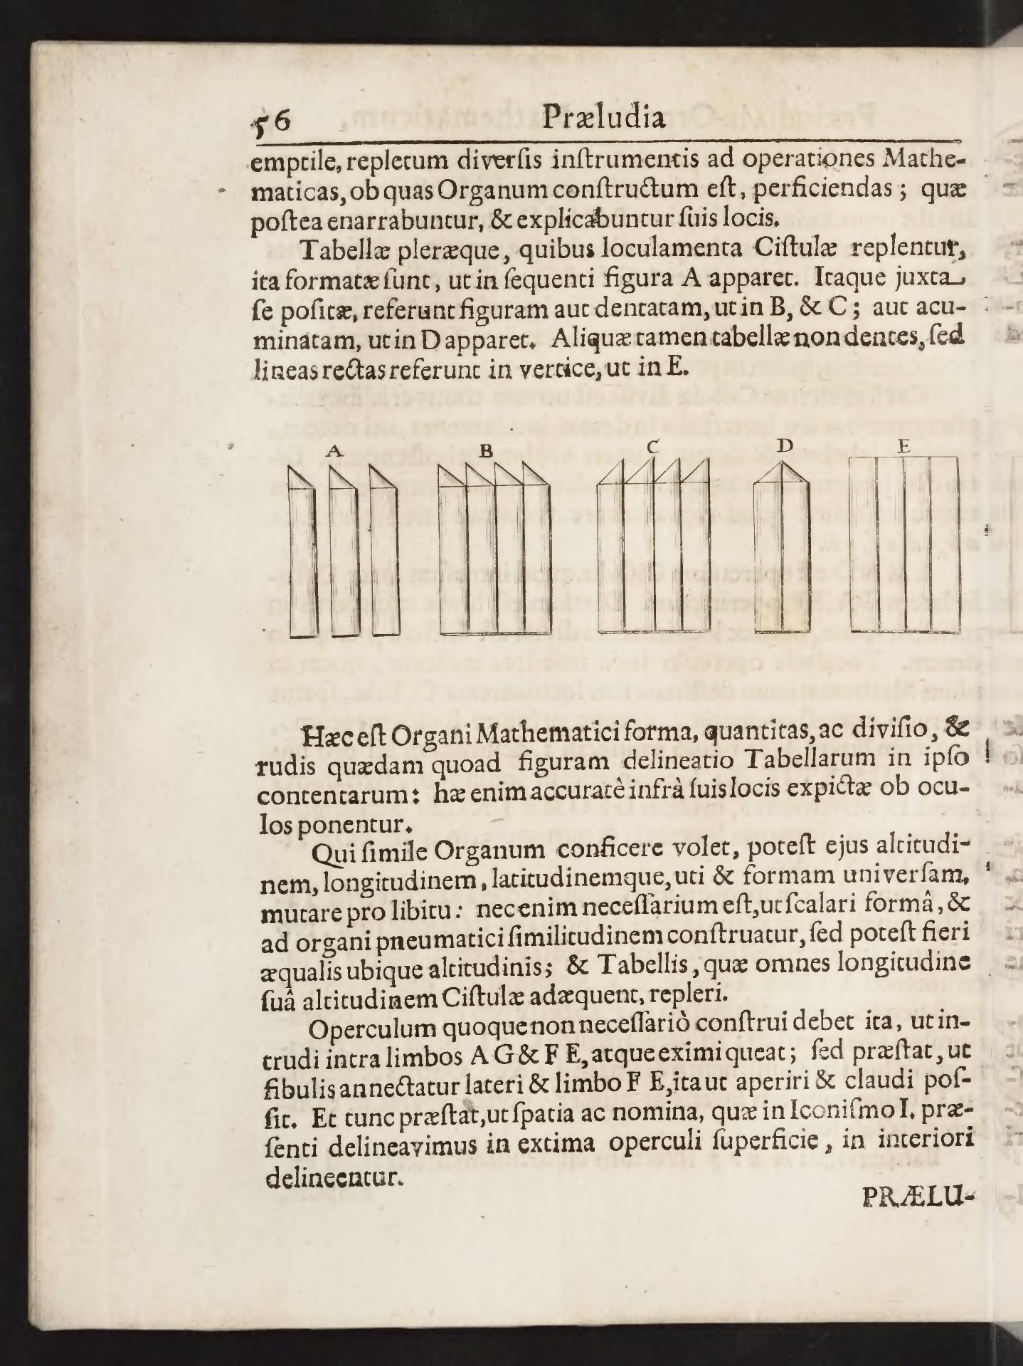 56 Præludia
emptile, repletum diverſis inſtrumentis ad operationes Mathe-
maticas, ob quas Organum conſtructum eſt, perficiendas; quæ
poſtea enarrabuntur, & explicabuntur ſuis locis.
Tabellæ pleræque, quibus loculamenta Ciſtulæ replentur,
ita formatæ ſunt, ut in ſequenti figura A apparet. Itaque juxta
ſe poſitæ, referunt figuram aut dentatam, ut in B, & C; aut acu-
minatam, ut in D apparet. Aliquæ tamen tabellæ non dentes, ſed
lineas rectas referunt in vertice, ut in E.
A B C D E
Hæc eſt Organi Mathematici forma, quantitas, ac diviſio, &
rudis quædam quoad figuram delineatio Tabellarum in ipſo
contentarum: hæ enim accuratè infrà ſuis locis expictæ ob ocu-
los ponentur.
Qui ſimile Organum conficere volet, poteſt ejus altitudi-
nem, longitudinem, latitudinemque, uti & formam univerſam,
mutare pro libitu: nec enim neceſſarium eſt, ut ſcalari formâ, &
ad organi pneumatici ſimilitudinem conſtruatur, ſed poteſt fieri
æqualis ubique altitudinis; & Tabellis, quæ omnes longitudine
ſuâ altitudinem Ciſtulæ adæquent, repleri.
Operculum quoque non neceſſariò conſtrui debet ita, ut in-
trudi intra limbos A G & F E, atque eximi queat; ſed præſtat, ut
fibulis annectatur lateri & limbo F E, ita ut aperiri & claudi poſ-
ſit. Et tunc præſtat, ut ſpatia ac nomina, quæ in Iconiſmo I. præ-
ſenti delineavimus in extima operculi ſuperficie, in interiori
delineentur.
PRÆLU-